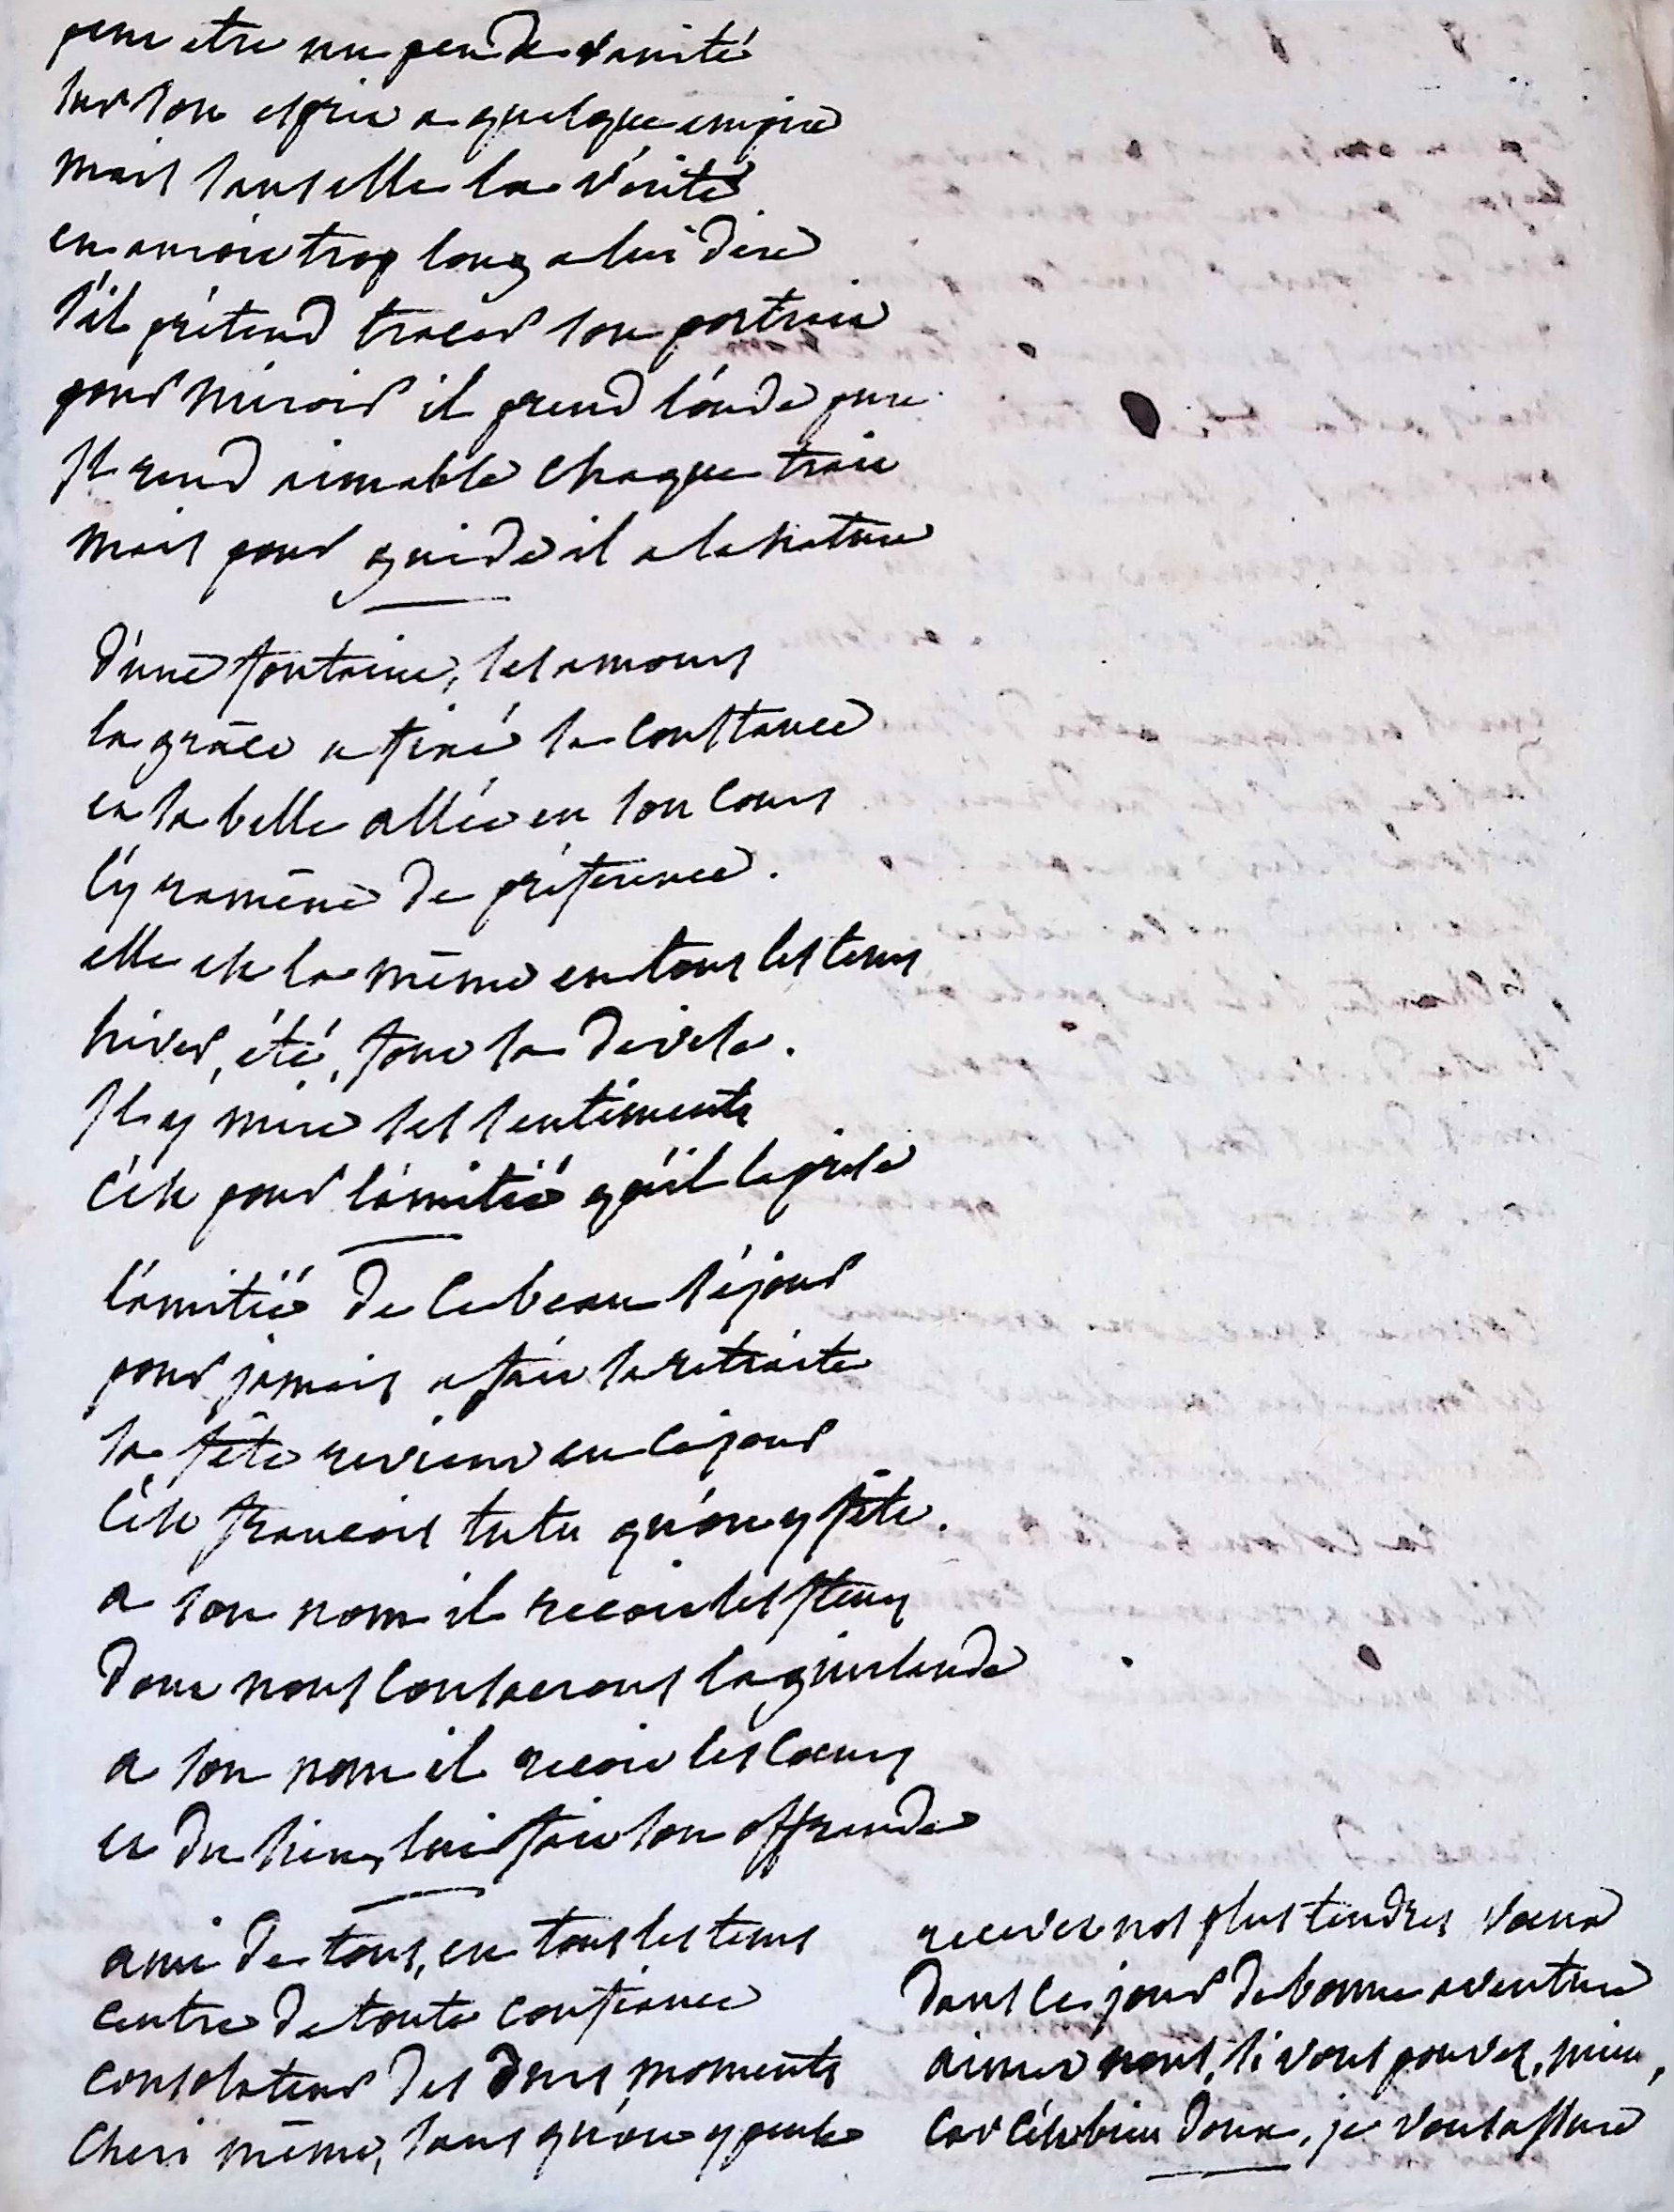 peut etre un peu de vanité
sur son esprit a quelque empire
mais sans elle la vérité
en auroit trop long a lui dire
s'il prétend tracer son portrait
pour miroir il prend l'onde pure
Il rend aimable chaque trait
mais pour guide il a la nature
d'une fontaine, ses amours
la grace a fixé sa constance
et sa belle allée en son cours
l'y ramene de préférence.
elle est la même en tous les tems
hiver, été, font sa devise.
Il y mire ses sentiments
c'est pour l'amitié qu'il la prise
l'amitié de ce beau séjour
pour jamais a fait sa retraite
sa fête revient en ce jour
c'est francois tutu qu'on y fête.
a son nom il recoit les fleurs
dont nous consacrons la guirlande
a son nom il recoit les coeurs
et du sien, lui fait son offrande
ami de tous, en tous les tems
centre de toute confiance
consolateur des durs moments
cheri même, sans qu'on y pense
recevez nos plus tendres voeux
dans ce jour de bonne aventure
aimez nous, si vous pouvez, mieux,
car c'est bien doux, je vous assure